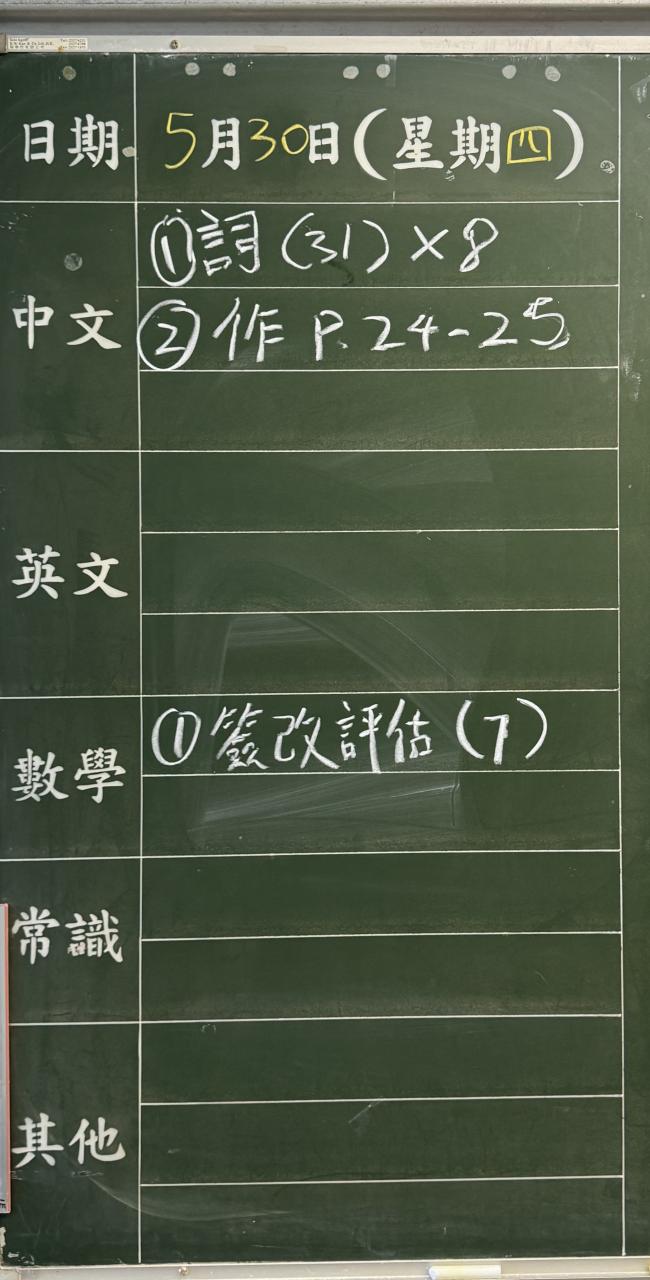 日期 5月30日(星期四)
中文 ①詞(31)×8
②作 P.24-25
英文
數學 ①簽改評估(7)
常識
其他